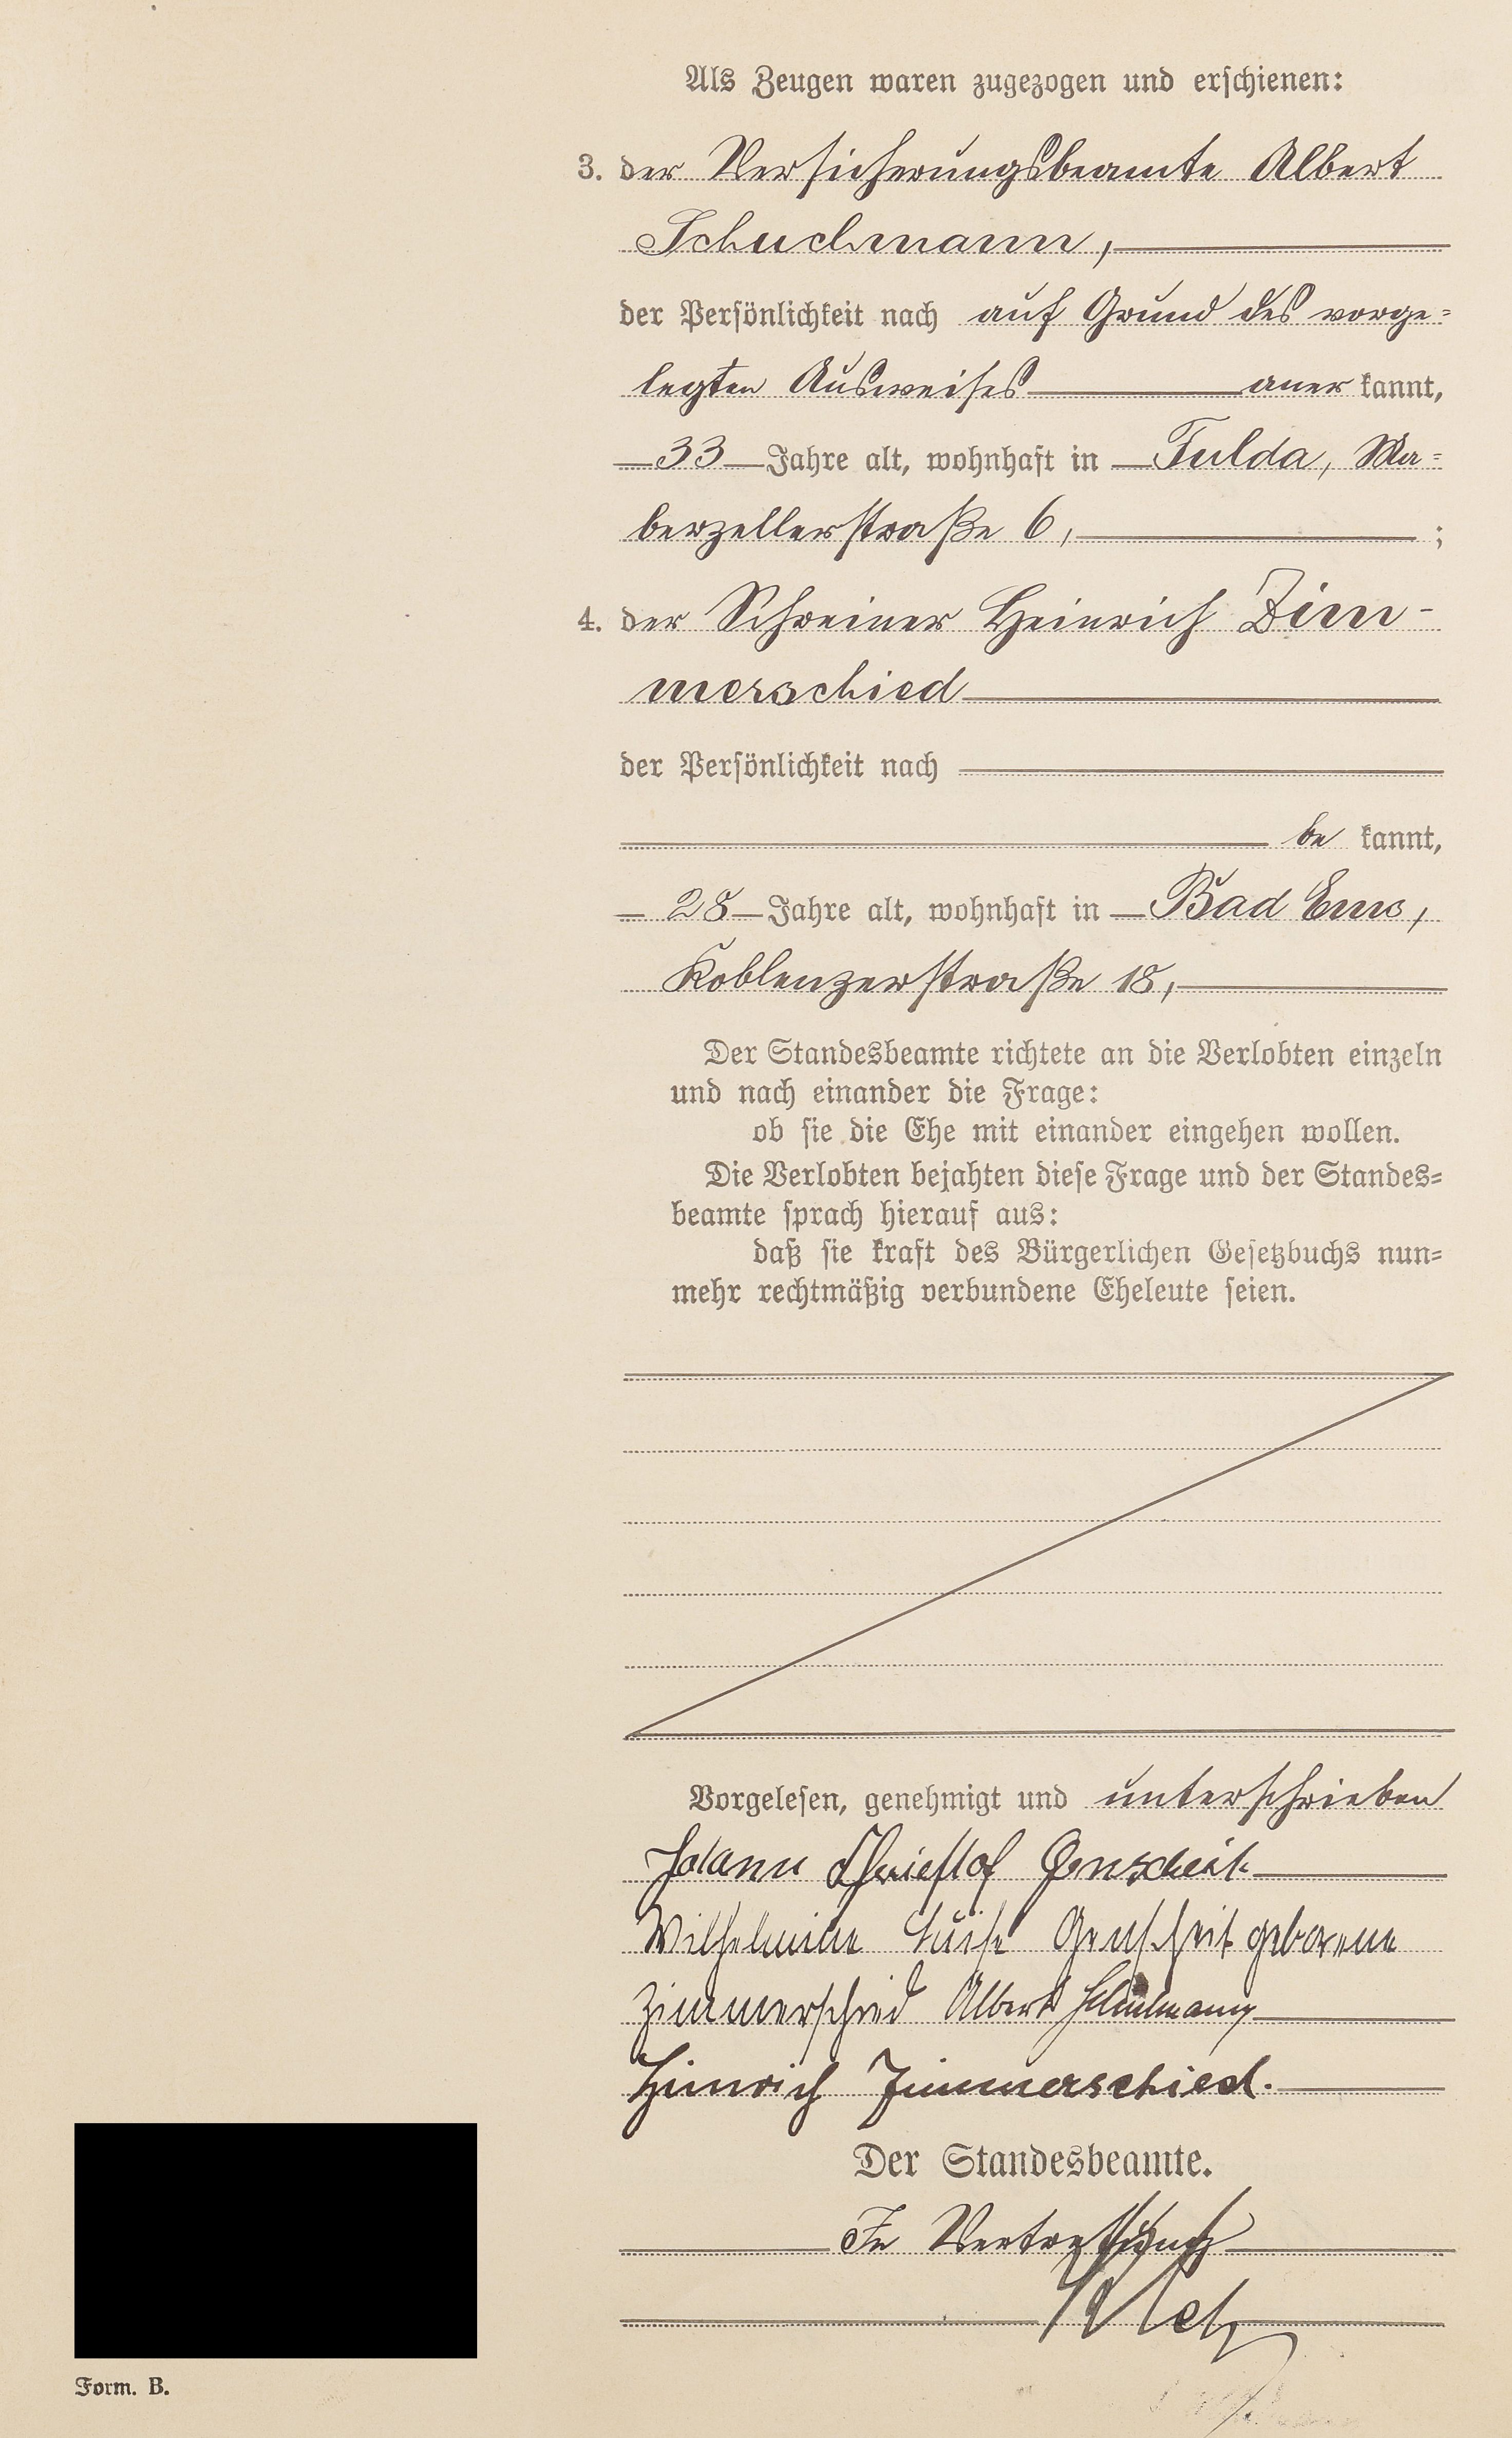 Als Zeugen waren zugezogen und erschienen:
3. der Versicherungsbeamte Albert
Schuchmann,
der Persönlichkeit nach auf Grund des vorge=
legten Ausweises aner kannt,
33 Jahre alt, wohnhaft in Fulda, Ma=
berzellerstraße 6, ;
4. der Schreiner Heinrich Zim-
merschied
der Persönlichkeit nach
be kannt,
28 Jahre alt, wohnhaft in Bad Ems,
Koblenzerstraße 18,
Der Standesbeamte richtete an die Verlobten einzeln
und nach einander die Frage:
ob sie die Ehe mit einander eingehen wollen.
Die Verlobten bejahten diese Frage und der Standes=
beamte sprach hierauf aus:
daß sie kraft des Bürgerlichen Gesetzbuchs nun=
mehr rechtmäßig verbundene Eheleute seien.
Vorgelesen, genehmigt und unterschrieben
Johann Christof Genscheit
Wilhelmine Luise Genscheit geborene
Zimmerschied Albert
Heinrich Zimmerschied.
Der Standesbeamte.
In Vertretung
Form. B.